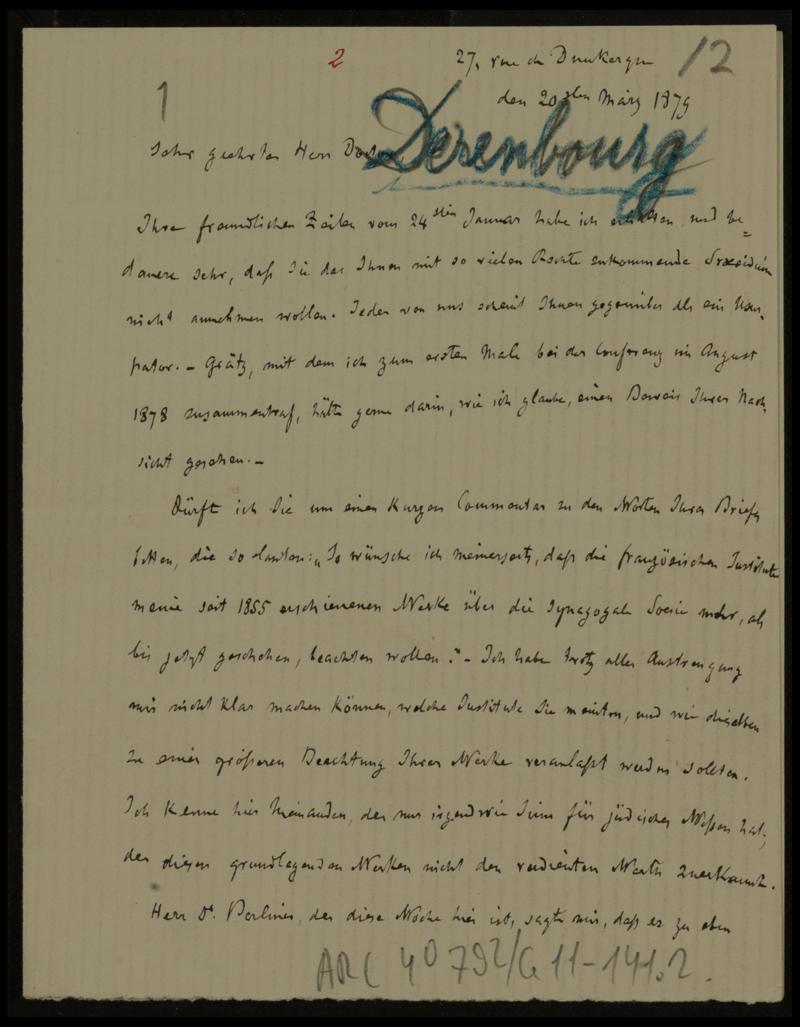 2
27, rue de Dunkerque 12
den 20sten März 1879
1
Sehr geehrter Herr Doctor
Derenbourg
Ihre freundlichen Zeilen vom 24sten Januar habe ich erhalten, und be=
dauere sehr, daß Sie das Ihnen mit so vielem Rechte zukommende Praesidium
nicht annehmen wollen. Jeder von uns scheint Ihnen gegenüber als ein Usur-
pator. – Grätz, mit dem ich zum ersten Male bei der Conferenz im August
1878 zusammentraf, hätte gerne darin, wie ich glaube, einen Beweis Ihrer Nach-
sicht gesehen. –
Dürft ich Sie um einen kurzen Commentar zu den Worten Ihres Briefes
bitten, die so lauten: „So wünsche ich meinerseits, daß die französischen Institute
meine seit 1855 erschienenen Werke über die synagogale Poesie mehr, als
bis jetzt geschehen, beachten wollen." – Ich habe trotz aller Anstrengung
mir nicht klar machen können, welche Institute Sie meinten, und wie dieselben
zu einer größeren Beachtung Ihrer Werke veranlaßt werden sollten.
Ich kenne hier Niemanden, der nur irgendwie Sinn für jüdisches Wissen hat,
der diesen grundlegenden Werken nicht den verdienten Werth zuerkennt.
Herr Dr. Berliner, der diese Woche hier ist, sagte mir, daß er zu eben
ARC 4º 792/G 11-141.2.